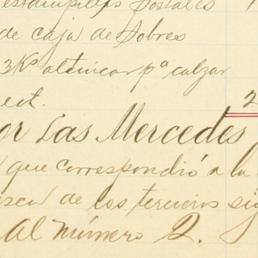 estampillas Postales
de caja de Sobres
3 Kº alcincar pª calzar
ect.
2
or Las Mercedes
que correspondió a la
de los terceros si
Al número 2.